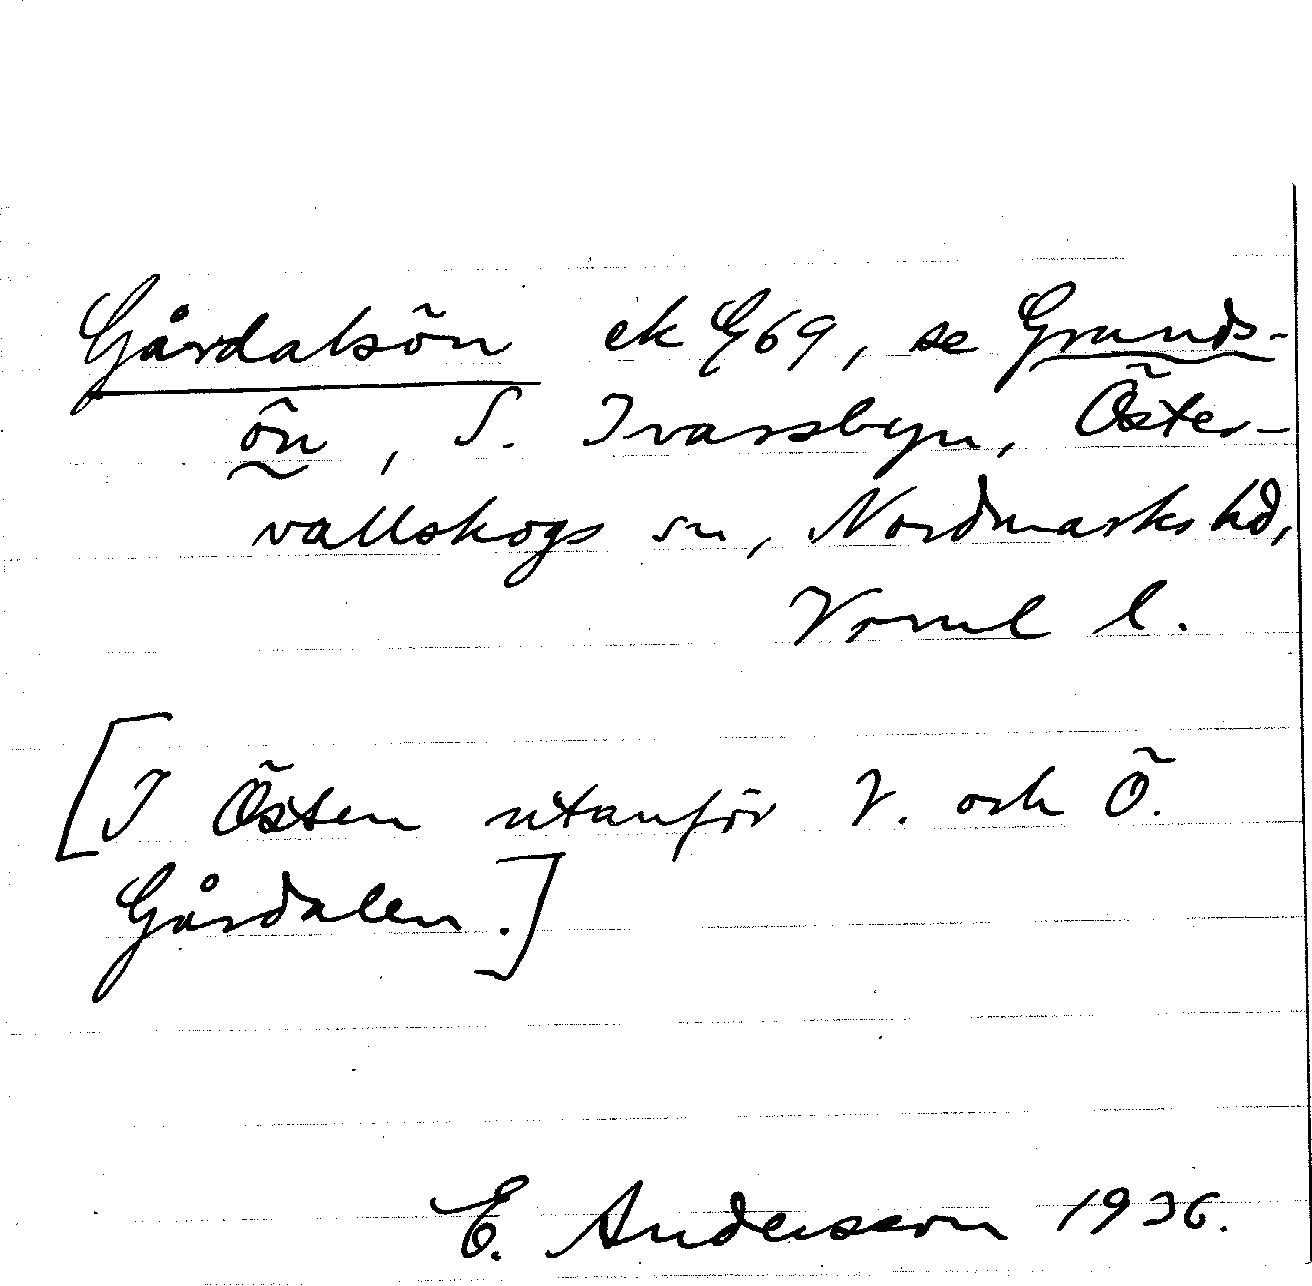 Gårdalsön ek G69, se Grunds-
ön, S. Ivarsbyn, Öster-
vallskogs sn, Nordmarks hd,
Vrml l.
[I Östen utanför V. och Ö.
Gårdalen.]
E. Andersson 1936.